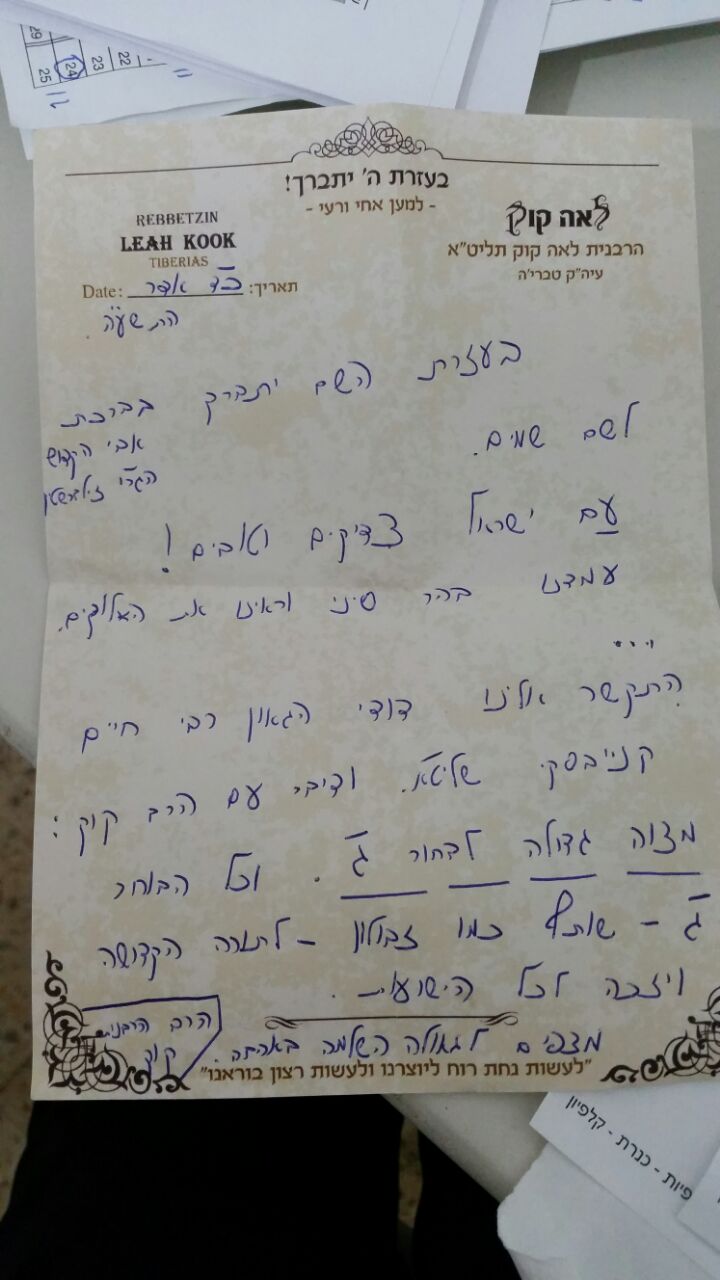 29
25
24
23
22
בעזרת ה' יתברך!
- למען אחי ורעי -
REBBETZIN
LEAH KOOK
TIBERIAS
לאה קוק
הרבנית לאה קוק תליט"א
עיה"ק טברי'ה
Date: כד אדר :תאריך
התשע"ה.
בעזרת השם יתברך בברכת
אבי הקדוש
הגר"י זילברשטין
לשם שמים.
עם ישראל צדיקים וטובים!
עמדנו בהר סיני וראינו את האלוקים.
התקשר אלינו דודי הגאון רבי חיים
קנייבסקי שליט"א. ודיבר עם הרב קוק:
מצוה גדולה לבחור ג. וכל הבוחר
ג - שותף כמו זבולון - לתורה הקדושה
ויזכה לכל הישועות.
מצפים לגאולה השלמה באהבה.
הרב הרבנית
קוק
"לעשות נחת רוח ליוצרנו ולעשות רצון בוראנו"
פיות - כנרת - קלפיון